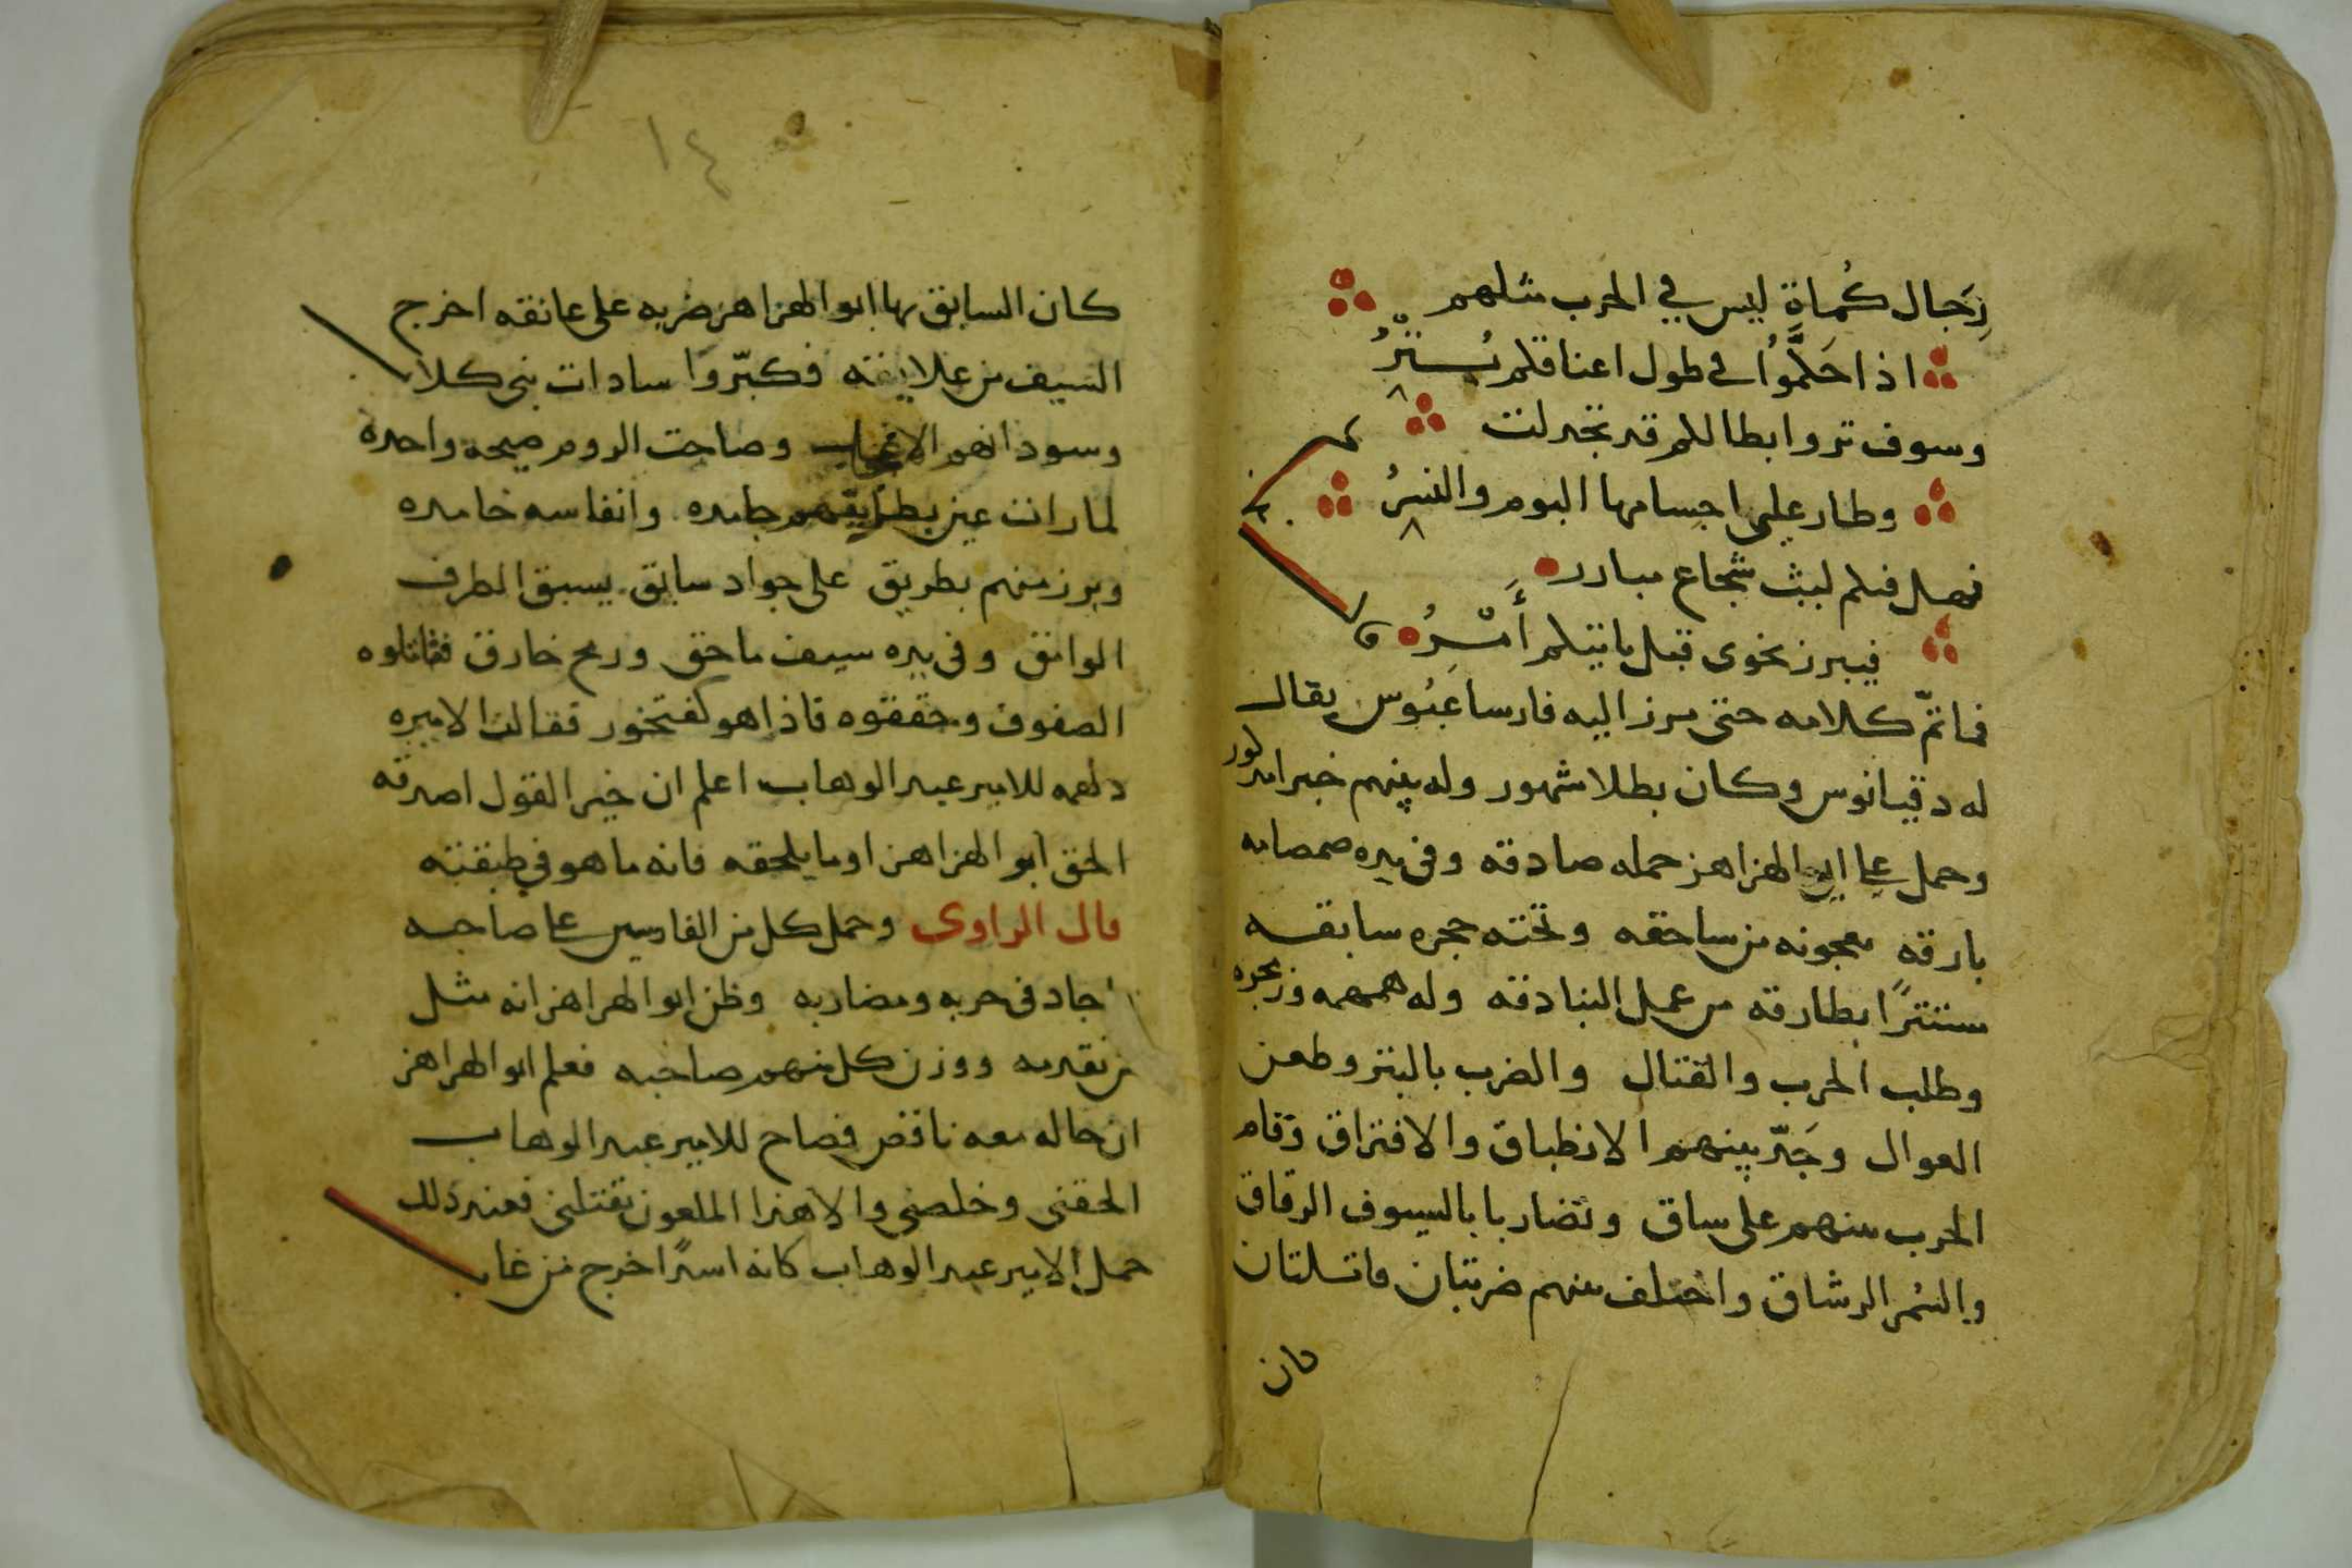 رِجَال كُماة ليس في الحرب مثلهم
اذا حَكَّموُا في طول اعناقكم بُستّرُ
وسوف تروا بطالكم قد تجدلت
وطار علي اجسامها البوم والنسرُ
فهل فيكم ليث شجاع مبادر
فيبرز نحوى قبل ياتيكم أَسْرُ
فما تمّ كلامه حتى برز اليه فارسا عَبُوس يقال
له دقيانوس وكان بطلا مشهور وله بينهم خبرا مذكور
وحمل علي ابو الهزاهز حمله صادقه وفى يده صمصامه
بارقه معجونه من ساحقه وتحته حجره سابقه
مستترًا بطارقه من عمل البنادقه وله همهمه وزمجره
وطلب الحرب والقتال والضرب بالبتر وطعن
العوال وجَرّ بينهم الانطباق والافتراق وقام
الحرب منهم على ساق وتضاربا بالسيوف الرقاق
والسُمر الرشاق واختلف منهم ضربتان قاتلتان
كان
١٤
كان السابق بها ابو الهزاهز ضربه على عاتقه اخرج
السيف من علايقه فكبّروا سادات بنى كلاب
وسودانهم الانجاب وصاحت الروم صيحه واحده
لما رات عين بطريقهم جامده وانفاسه خامده
وبرز منهم بطريق على جواد سابق يسبق الطرف
الوامق وفى يده سيف ماحق ورمح خارق فتاملوه
الصفوف وحققوه فاذا هو كفتخور فقالت الاميره
دلهمه للامير عبد الوهاب اعلم ان خير القول اصدقه
الحق ابو الهزاهز او ما يلحقه فانه ما هو في طبقته
قال الراوى وحمل كل من الفارسين على صاحبه
اجاد فى حربه ومضاربه وظن ابو الهزاهز انه مثل
من تقدمه ووزن كل منهم صاحبه فعلم ابو الهزاهز
ان حاله معه ناقص فصاح للامير عبد الوهاب
الحقنى وخلصنى والا هذا الملعون يقتلنى فعند ذلك
حمل الامير عبد الوهاب كانه اسدًا خرج من غاب